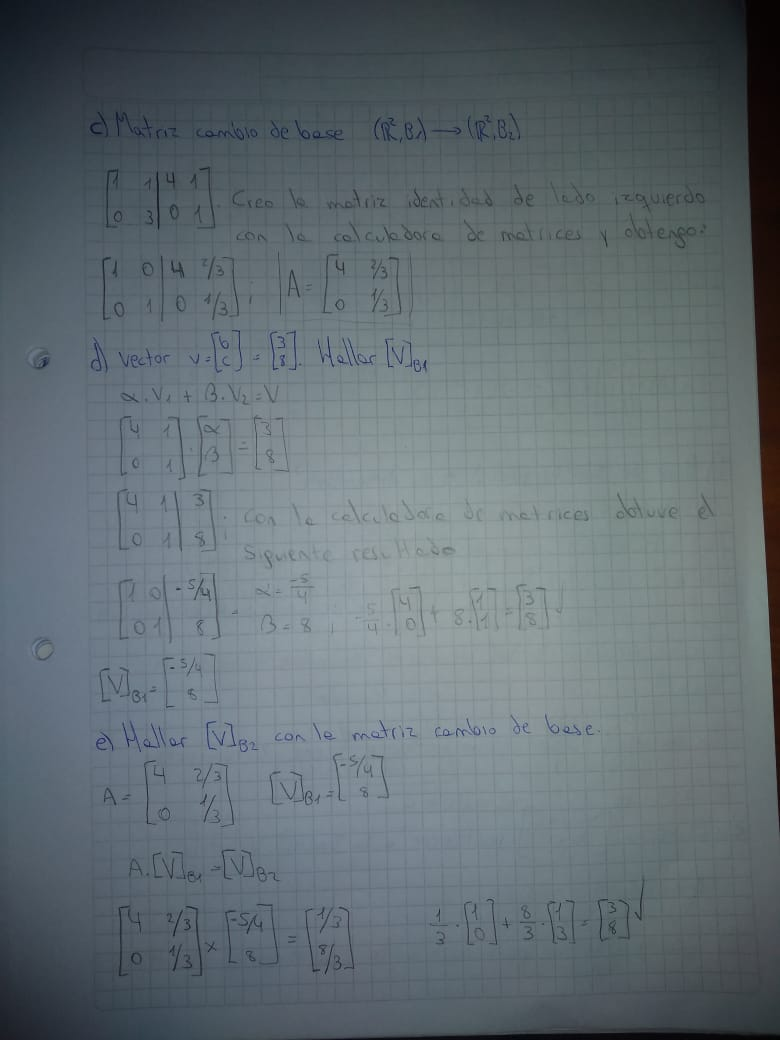 c) Matriz cambio de base (R², B1) → (R², B2)
[1 1 | 4 1
0 3 | 0 1]. Creo la matriz identidad de lado izquierdo
con la calculadora de matrices y obtengo:
[1 0 | 4 2/3
0 1 | 0 1/3]; | A = [4 2/3
0 1/3] |
d) vector v = [b
c] = [3
8]. Hallar [V]B1
α.V1 + β.V2 = V
[4 1
0 1] . [α
β] = [3
8]
[4 1 | 3
0 1 | 8]; con la calculadora de matrices obtuve el
siguiente resultado
[1 0 | -5/4
0 1 | 8] = α = -5/4
β = 8 ; -5/4 . [4
0] + 8 . [1
1] = [3
8] ✓
[V]B1 = [-5/4
8]
e) Hallar [V]B2 con la matriz cambio de base.
A = [4 2/3
0 1/3] [V]B1 = [-5/4
8]
A.[V]B1 = [V]B2
[4 2/3
0 1/3] × [-5/4
8] = [1/3
8/3] 1/3 . [1
0] + 8/3 . [1
3] = [3
8] ✓